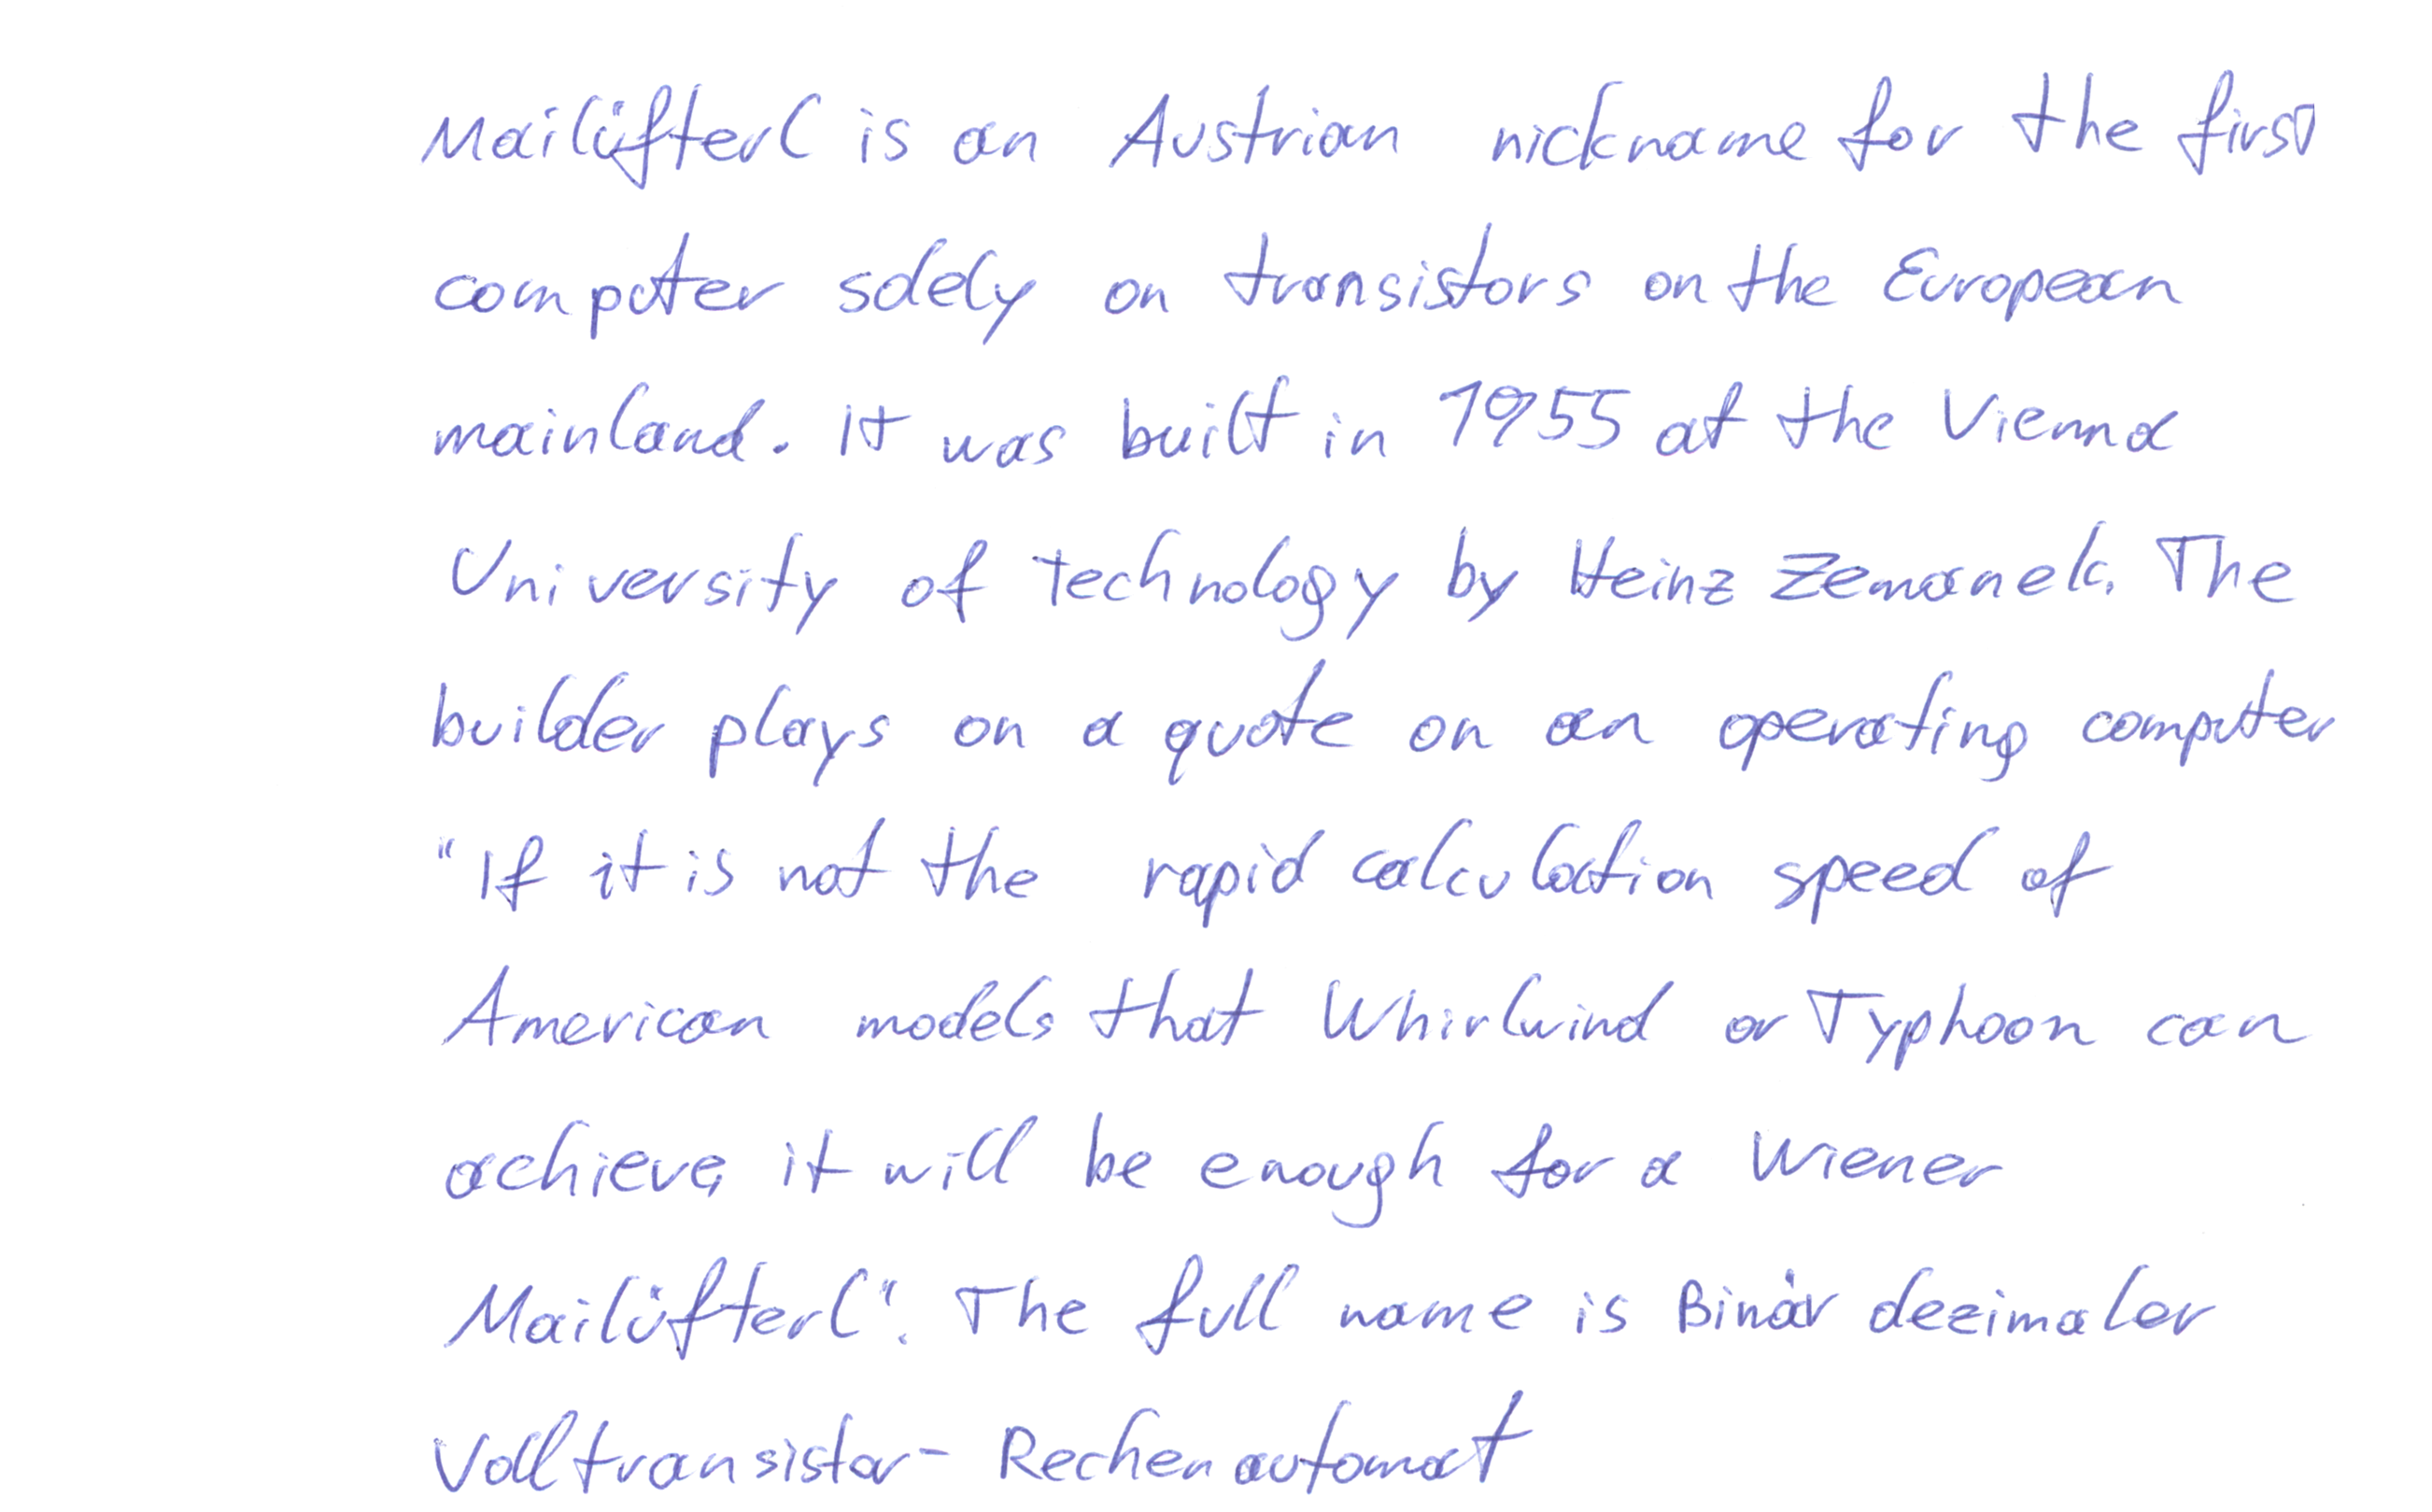 Mailüfterl is an Austrian nickname for the first
computer solely on transistors on the European
mainland. It was built in 1955 at the Vienna
University of Technology by Heinz Zemanek. The
builder plays on a quote on an operating computer
"If it is not the rapid calculation speed of
American models that Whirlwind or Typhoon can
achieve, it will be enough for a Wiener
Mailüfterl". The full name is Binär dezimaler
Volltransistor-Rechenautomat